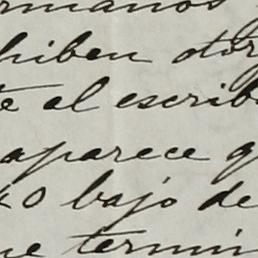 rmanos
hiben otor
te al escrib
aparece q
ko bajo de
ue termin